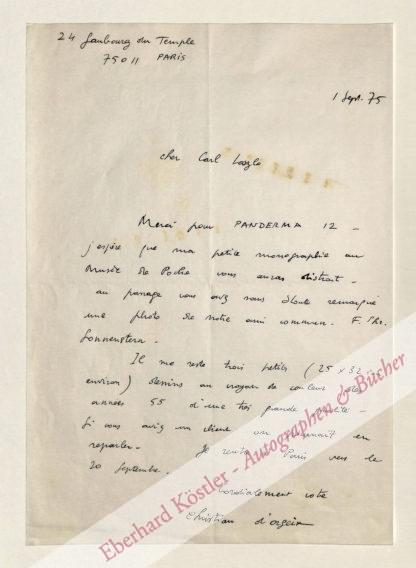 24 faubourg du Temple
75011 PARIS
1 Sept. 75
cher Carl Laszlo
Merci pour PANDERMA 12 –
j'espère que ma petite monographie au
Musée de Poche vous aura distrait –
au passage vous avez sans doute remarqué
une photo de notre ami commun. F. Sch.
Sonnenstern.
Il me reste trois petits (25 x 32
environ) dessins au crayon de couleur
années 55 d'une très grande qualité –
Si vous avez un client on pourrait en
reparler. Je rentre Paris vers le
20 Septembre.
Cordialement votre
Christian d'orgeix
Eberhard Köstler - Autographen & Bücher